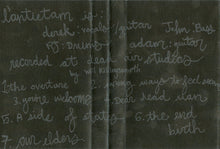 l'antietam is:
derek: vocals/guitar John: Bass
PJ: Drums adam: guitar
recorded at dead air studios
by will killingsworth
1. the overture 2. wrong ways to feel
3. you're welcome 4. dear dead
5. A side of states 6. the end
birth
7. our elders